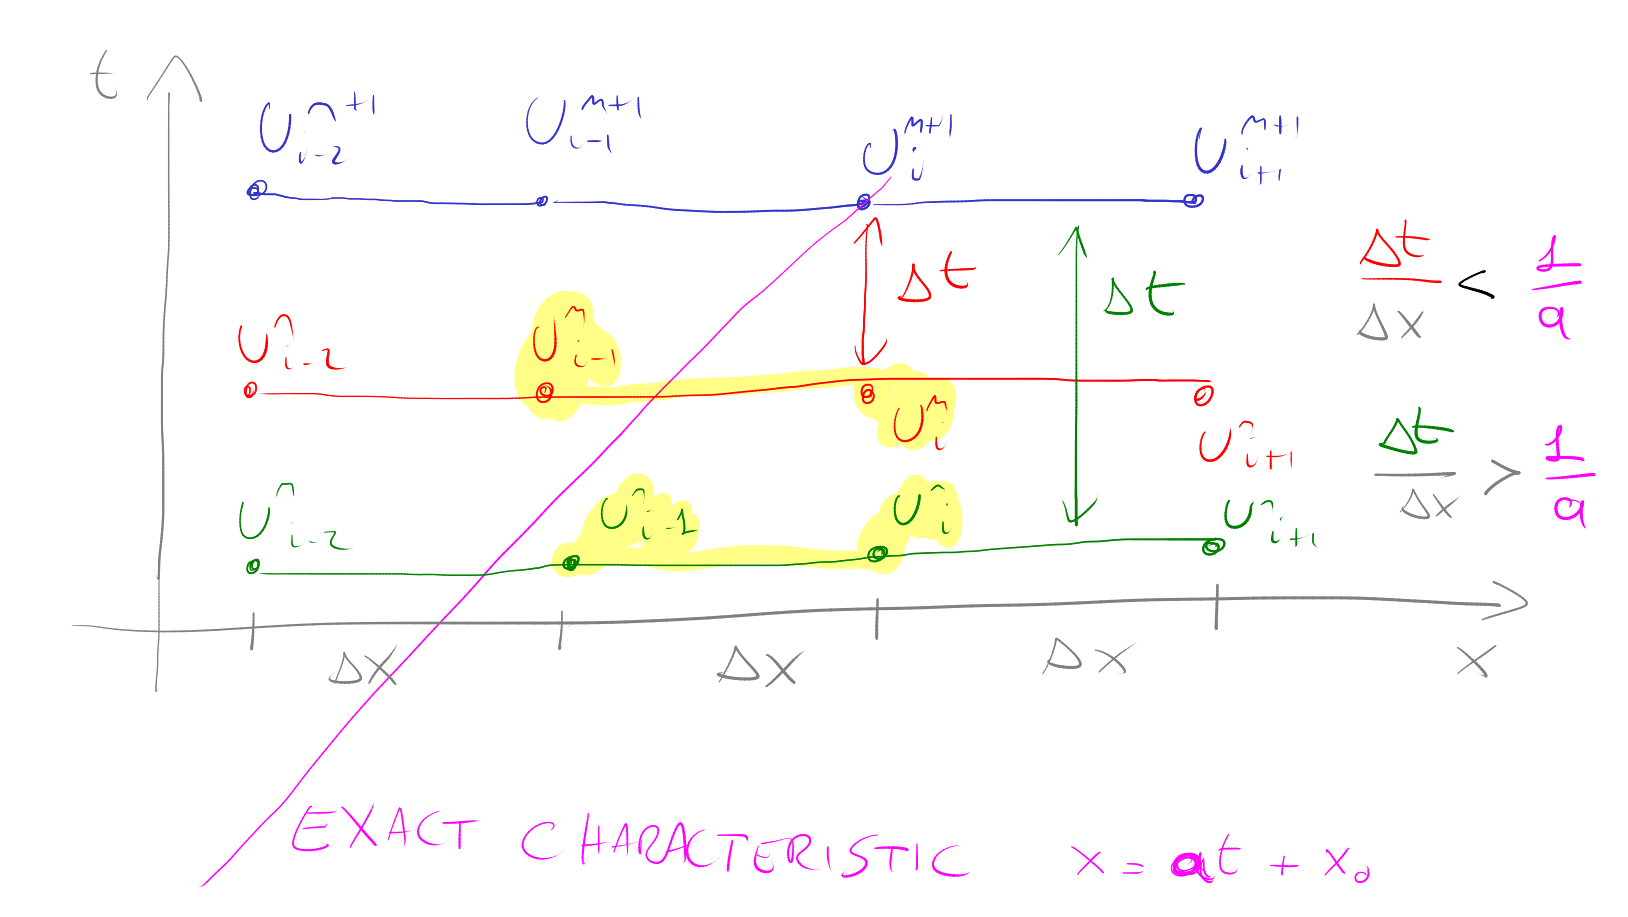 t
U_{i-2}^{n+1} U_{i-1}^{n+1} U_i^{n+1} U_{i+1}^{n+1}
Δt Δt
Δt/Δx < 1/a
U_{i-2}^n U_{i-1}^n U_i^n U_{i+1}^n
Δt/Δx > 1/a
U_{i-2}^n U_{i-1}^n U_i^n U_{i+1}^n
Δx Δx Δx x
EXACT CHARACTERISTIC x = at + x₀